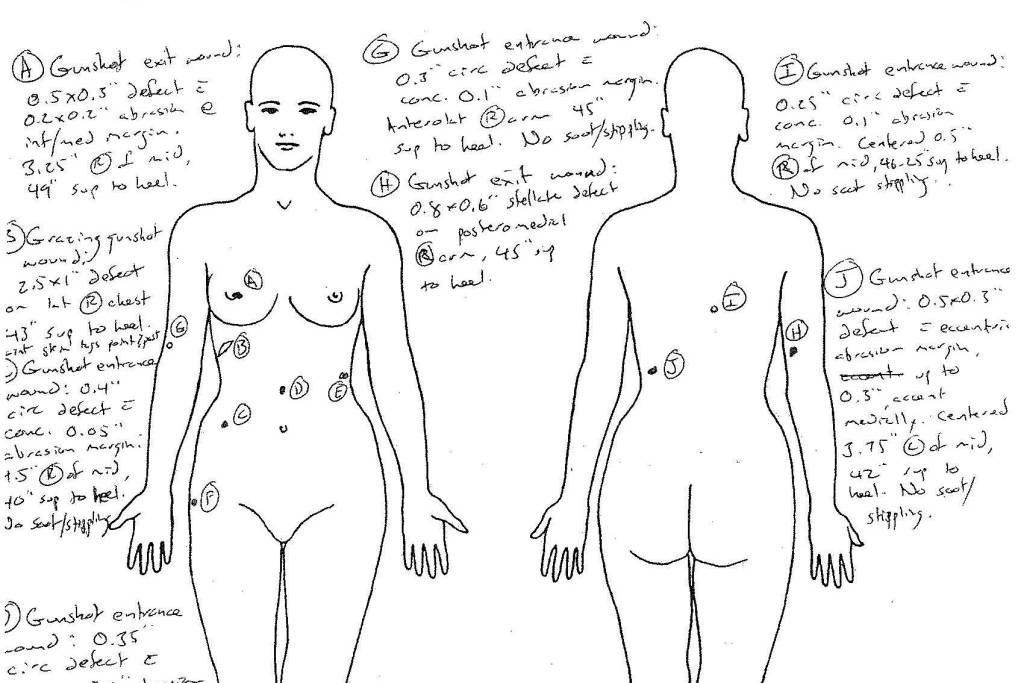 Ⓐ Gunshot exit wound:
0.5x0.3" defect c̄
0.2x0.2" abrasion @
inf/med margin.
3.25" Ⓡ of mid,
49" sup to heel.
Grazing gunshot
wound:
2.5x1" defect
on lat Ⓡ chest
43" sup to heel.
skin tags point
Gunshot entrance
wound: 0.4"
circ defect c̄
conc. 0.05"
abrasion margin.
Ⓡ of mid,
40" sup to heel.
No soot/stippling
Gunshot entrance
wound: 0.35"
circ defect c̄
Ⓖ Gunshot entrance wound:
0.3" circ defect c̄
conc. 0.1" abrasion margin.
Anterolat Ⓡ arm 45"
sup to heel. No soot/stippling.
Ⓗ Gunshot exit wound:
0.8x0.6" stellate defect
on posteromedial
Ⓡ arm, 45" sup
to heel.
Ⓘ Gunshot entrance wound:
0.25" circ defect c̄
conc. 0.1" abrasion
margin. Centered 0.5"
Ⓡ of mid, 46.25" sup to heel.
No soot stippling.
Ⓙ Gunshot entrance
wound: 0.5x0.3"
defect c̄ eccentric
abrasion margin,
up to
0.3", accent
medially. Centered
3.75" Ⓛ of mid,
42" sup to
heel. No soot/
stippling.
Ⓐ
Ⓖ
Ⓑ
Ⓓ
Ⓔ
Ⓒ
Ⓕ
Ⓘ
Ⓗ
Ⓙ